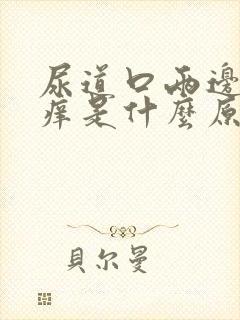 尿道口兩邊
痒是什麼原
貝尔曼